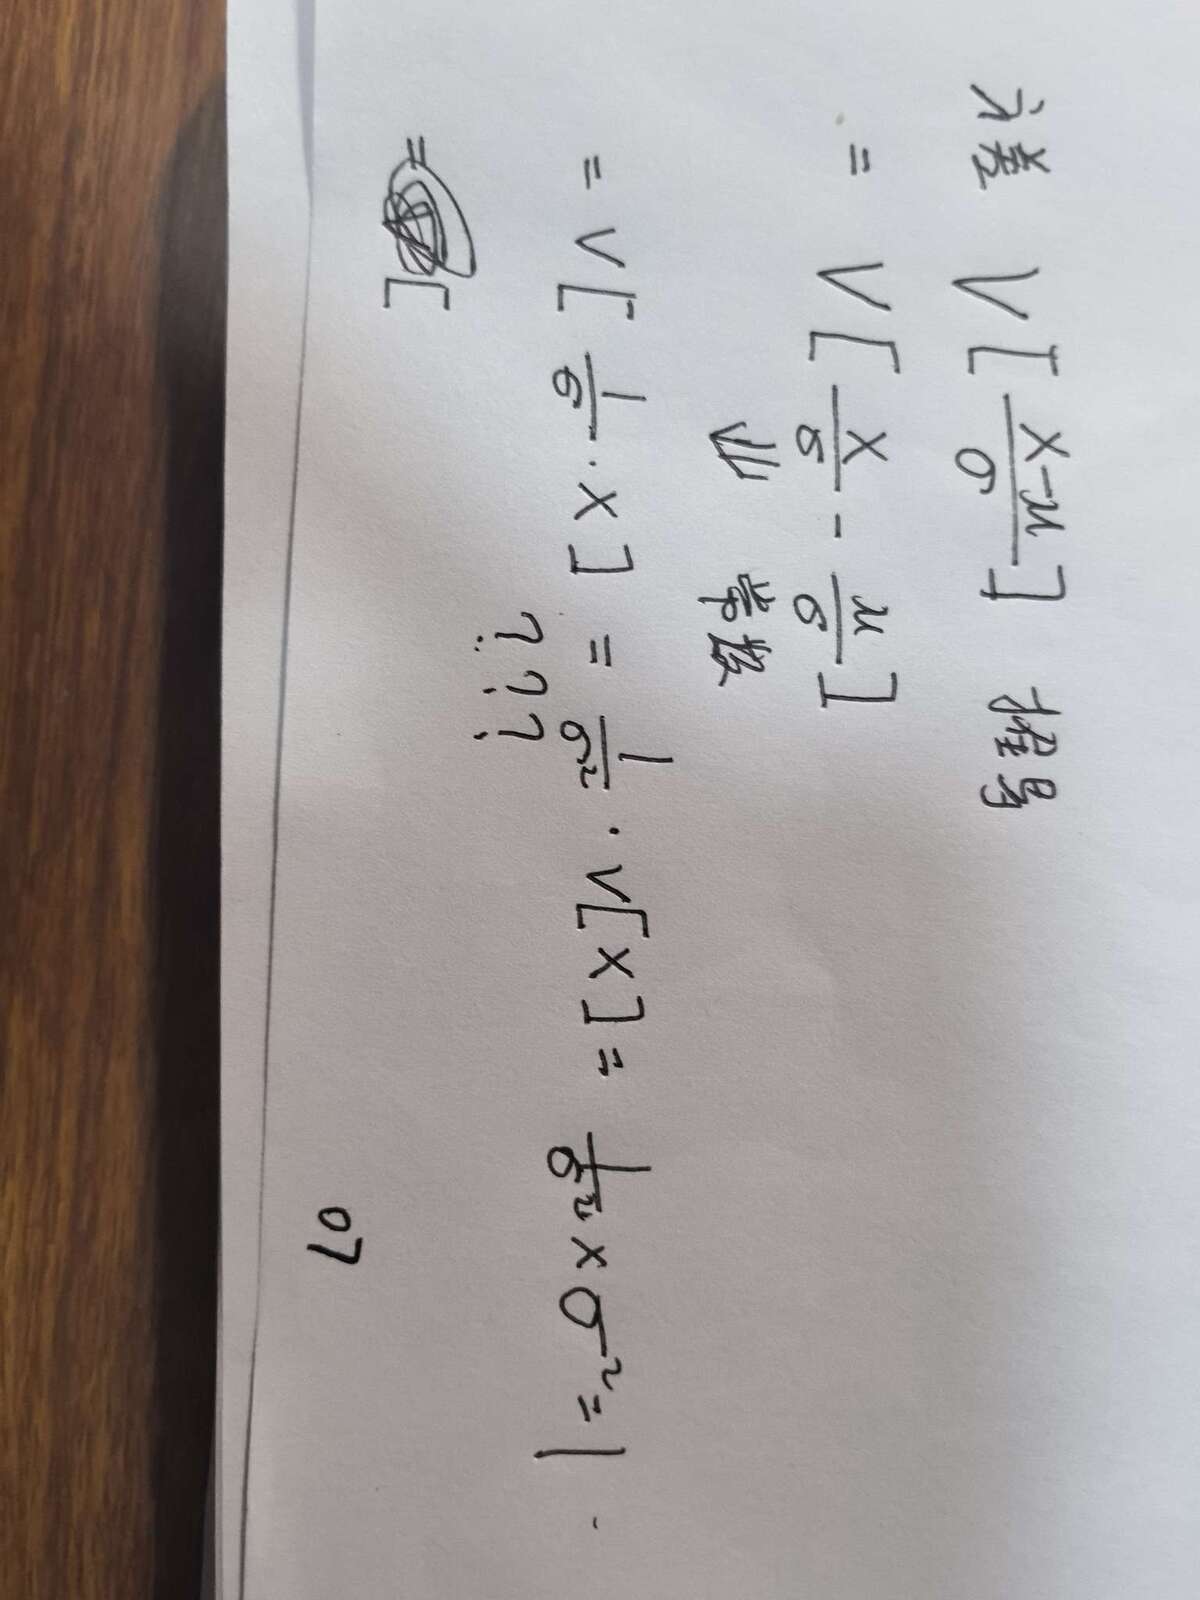 方差 V[(X-μ)/σ] 推导
= V[X/σ - μ/σ]
⇓ 常数
= V[1/σ · X] = 1/σ² · V[X] = 1/σ² × σ² = 1
???
= [
07